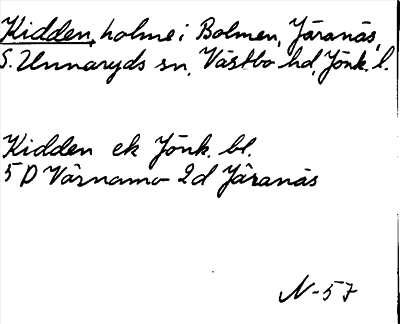 Kidden, holme i Bolmen, Järanäs,
S. Unnaryds sn, Västbo hd, Jönk. l.
Kidden ek Jönk. bl.
5 D Värnamo 2d Järanäs
N-57